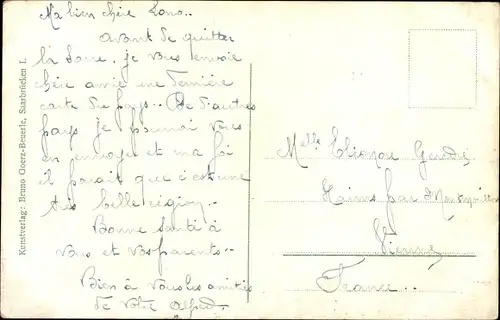 Ma bien chère Lono..
Avant de quitter
la Sarre, je vous envoie
chère amie une dernière
carte du pays.. De d'autres
pays je pourrai vous
en envoyer et ma foi
il paraît que c'est une
très belle région.
Bonne santé à
vous et vos parents..
Bien à vous les amitiés
de votre Alfred
Kunstverlag: Bruno Goerz-Beuerle, Saarbrücken I.
Melle Eléonore Gendre
Haims par
Vienne
France..